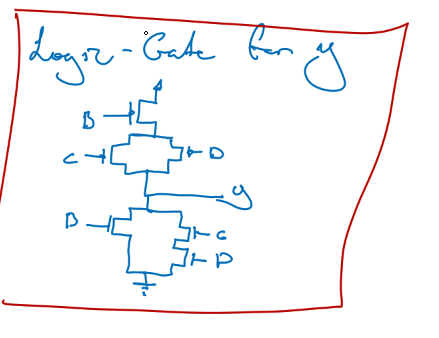 Logic-Gate for y
B
C D
y
B
C
D